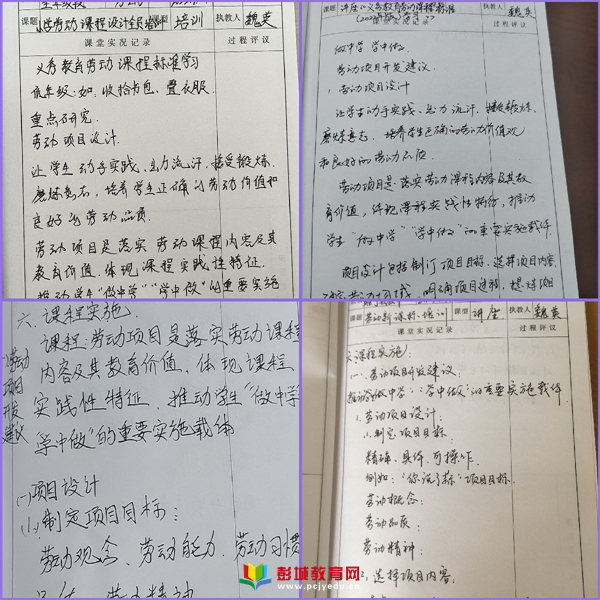 课题 小学劳动课程设计全员培训 课型 培训 执教人 魏英
课堂实况记录 过程评议
义务教育劳动课程标准学习
低年级:如:收拾书包、叠衣服.
重点研究.
劳动项目设计.
让学生动手实践、出力流汗、接受锻炼、
磨炼意志、培养学生正确的劳动价值和
良好的劳动品质.
劳动项目是落实劳动课程内容及其
教育价值,体现课程实践性特征.
推动学生"做中学""学中做"的重要实施
课题 讲座《义务教育劳动课程标准 执教人 魏英
课堂实况记录 过程评议
做中学 学中做.
劳动项目开发建议.
1.劳动项目设计
让学生动手实践、出力流汗、接受锻炼、
磨炼意志、培养学生正确的劳动价值观
和良好的劳动品质.
劳动项目是落实劳动课程内容及其教
育价值,体现课程实践性特征,推动
学生"做中学""学中做"的重要实施载体.
项目设计包括制订项目目标、选择项目内容、
六.课程实施.
劳动项目开发建议
课程:劳动项目是落实劳动课程
内容及其教育价值,体现课程
实践性特征,推动学生"做中学
学中做"的重要实施载体
(一)项目设计
(1)制定项目目标:
劳动观念、劳动能力、劳动习惯
课题 劳动新课标培训 课型 讲座 执教人 魏英
课堂实况记录 过程评议
课程实施:
一.劳动项目开发建议.
推动"做中学""学中做"的重要实施载体.
1.劳动项目设计:
(1)制定项目目标.
精确、具体、可操作.
劳动概念:
劳动品质:
劳动精神:
选择项目内容:
彭城教育网
www.pcjyedu.cn